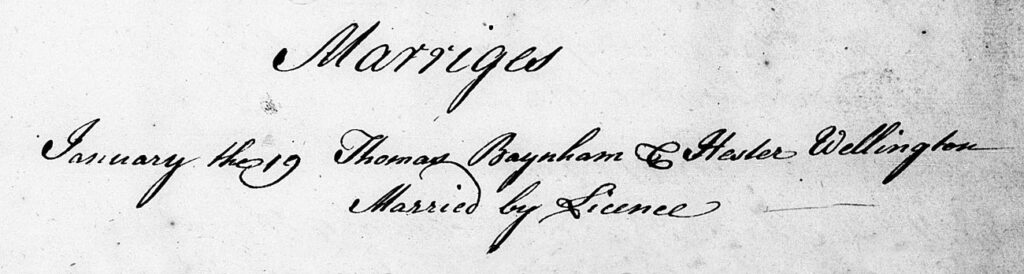 Marriges
January the 19 Thomas Baynham & Hester Wellington
Married by Licence